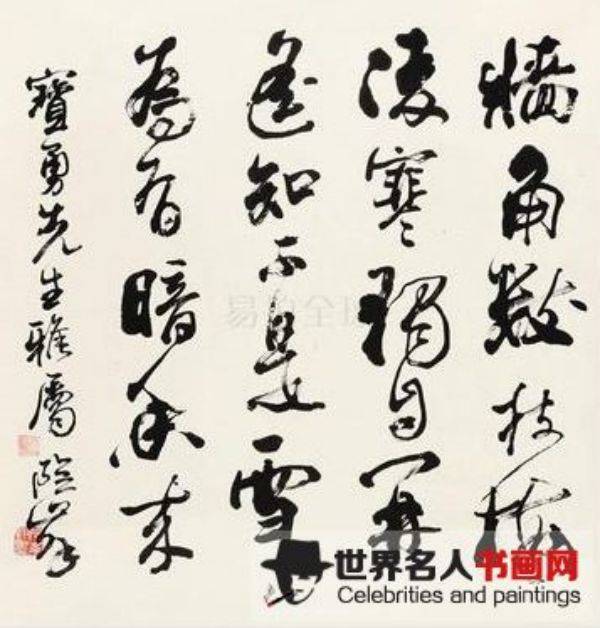 牆角数枝梅
凌寒獨自開
遥知不是雪
為有暗香来
寶勇先生雅屬
易拍全球
世界名人书画网
Celebrities and paintings